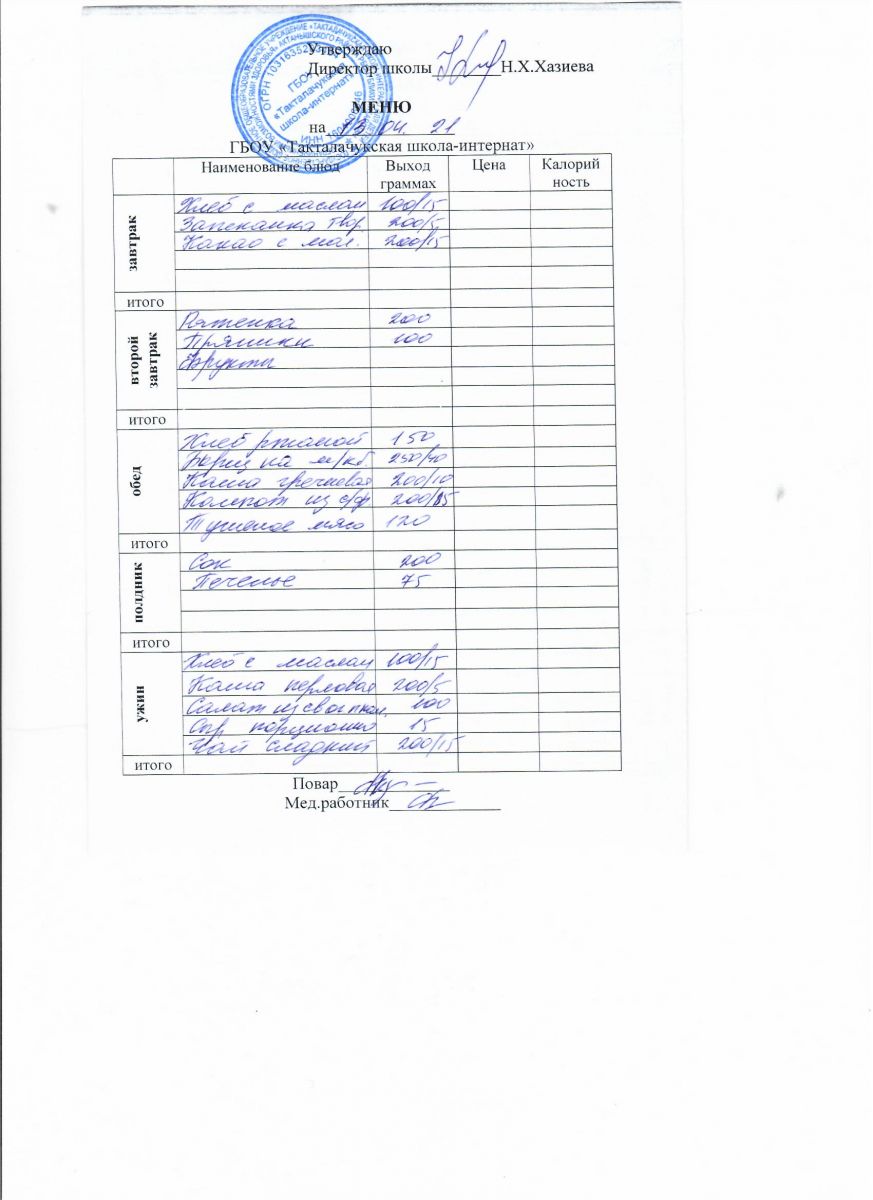 Утверждаю
Директор школы Н.Х.Хазиева
МЕНЮ
на 13 04. 21
ГБОУ «Такталачукская школа-интернат»
Наименование блюд Выход граммах Цена Калорий ность
завтрак
Хлеб с маслом 100/15
Запеканка твор. 200/5
Какао с мол. 200/15
итого
второй завтрак
Ряженка 200
Пряники 100
Фрукты
итого
обед
Хлеб ржаной 150
Борщ на м/кб. 250/40
Каша гречневая 200/10
Компот из с/ф 200/15
Тушеное мясо 120
итого
полдник
Сок 200
Печенье 75
итого
ужин
Хлеб с маслом 100/15
Каша перловая 200/5
Салат из св 100
Сыр порционно 15
Чай сладкий 200/15
итого
Повар
Мед.работник
ГБОУ
«Такталачукская
школа-интернат»